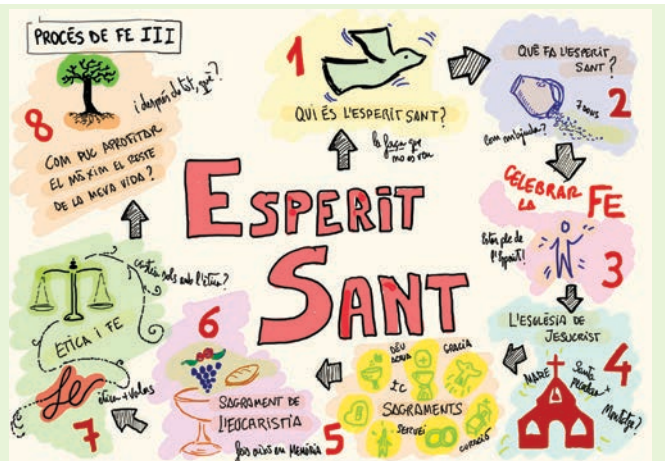 PROCÉS DE FE III
ESPERIT
SANT
1
QUI ÉS L'ESPERIT SANT?
la força que
no es veu
QUÈ FA L'ESPERIT
SANT?
2
7 dons
com ens ajuda?
CELEBRAR
LA FE
3
Estar ple de
l'Esperit!
L'ESGLÉSIA DE
JESUCRIST
4
MARE
Santa
pecadora
+
Muntatge?
5
DÉU
ACTUA
GRÀCIA
+C
SAGRAMENTS
SERVEI
CURACIÓ
6
SAGRAMENT DE
L'EUCARISTIA
feu això en MEMÒRIA
7
ÈTICA I FE
amb l'ètica?
fe
8
i després de tot, què?
COM PUC APROFITAR
EL MÀXIM EL RESTE
DE LA MEVA VIDA?